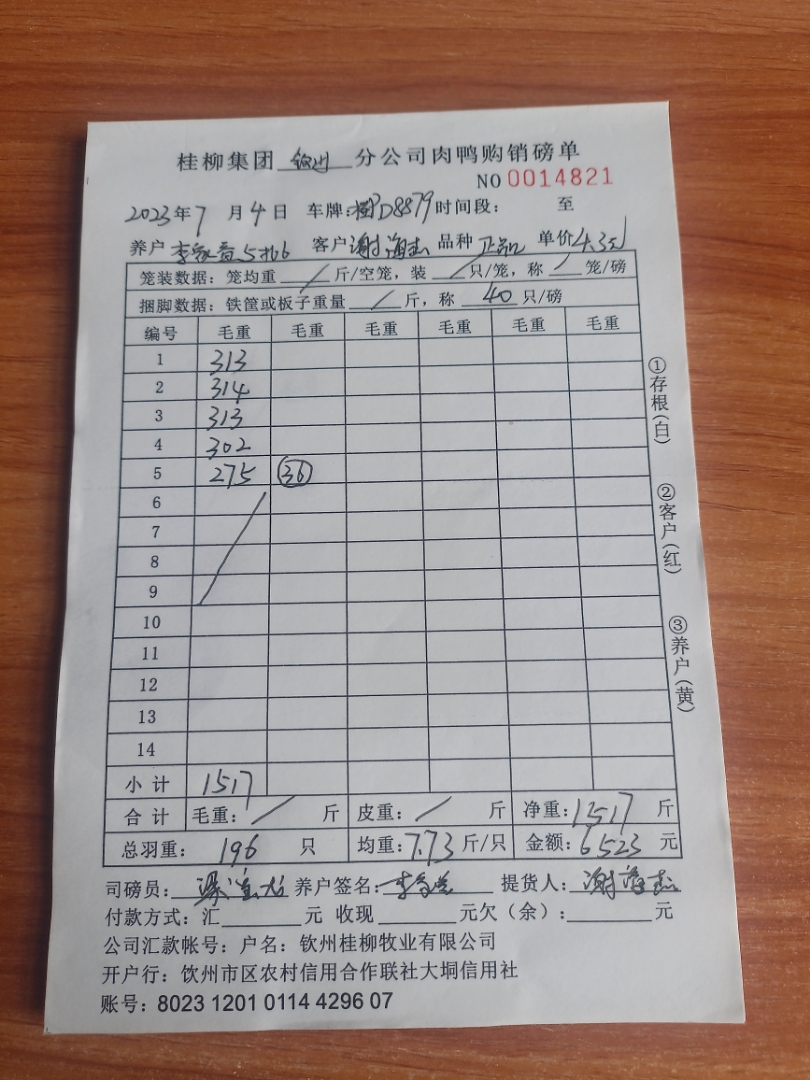 桂柳集团 钦州 分公司肉鸭购销磅单
NO 0014821
2023年7月4日 车牌:桂D8879 时间段: 至
养户 李 客户 谢海 品种 正品 单价 4.3元
笼装数据:笼均重 / 斤/空笼,装 / 只/笼,称 / 笼/磅
捆脚数据:铁筐或板子重量 / 斤,称 40 只/磅
编号 毛重 毛重 毛重 毛重 毛重 毛重
1 313
2 314
3 313
4 302
5 275 36
6
7
8
9
10
11
12
13
14
小计 1517
合计 毛重: / 斤 皮重: / 斤 净重:1517 斤
总羽重: 196 只 均重:7.73 斤/只 金额:6523 元
司磅员: 养户签名:李 提货人:谢海
付款方式:汇 元 收现 元欠(余): 元
公司汇款帐号:户名:钦州桂柳牧业有限公司
开户行:饮州市区农村信用合作联社大垌信用社
账号:8023 1201 0114 4296 07
①存根(白)
②客户(红)
③养户(黄)